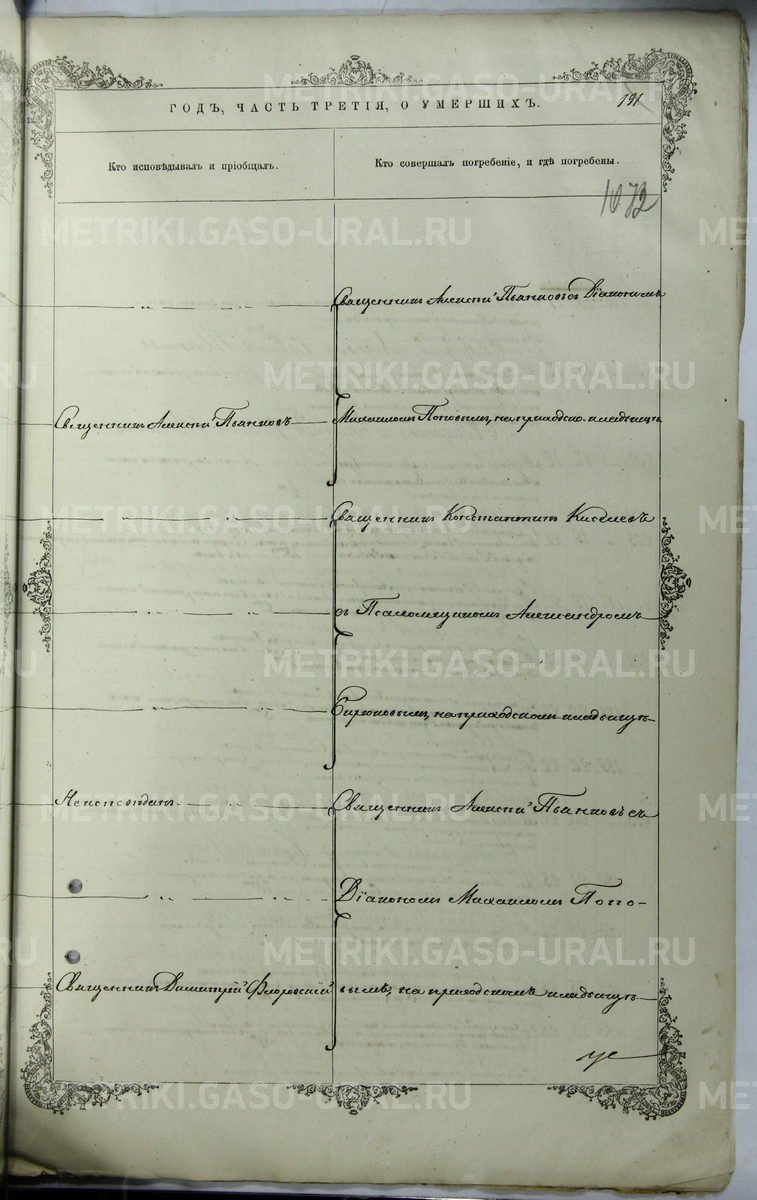 ГОДЪ, ЧАСТЬ ТРЕТІЯ, О УМЕРШИХЪ.
191
Кто исповѣдывалъ и пріобщалъ.
Кто совершалъ погребеніе, и гдѣ погребены.
1072
Священникъ Алексѣй Пьянковъ съ Діакономъ
Священникъ Алексѣй Пьянковъ
Михаиломъ Поповымъ, на приходско. кладбищѣ
Священникъ Константинъ Киселевъ
съ Псаломщикомъ Александромъ
Бирюковымъ, на приходскомъ кладбищѣ
Неисповѣданъ
Священникъ Алексѣй Пьянковъ съ
Діакономъ Михаиломъ Попо-
Священникъ Димитрій Флоровскій
вымъ, на приходскомъ кладбищѣ
METRIKI.GASO-URAL.RU